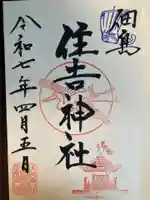 細島
住吉神社
令和七年四月五日